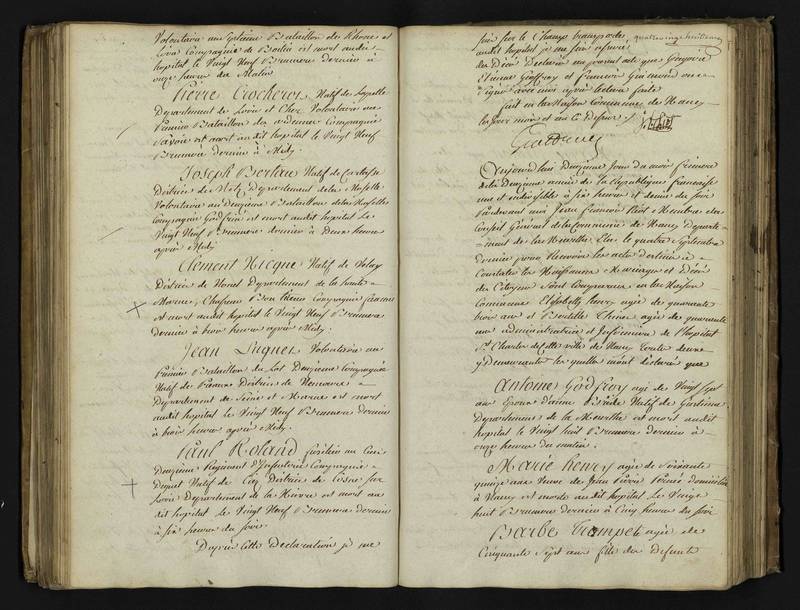 Volontaire au Septième Bataillon de Rhône et
Loire Compagnie de est mort audit
hopital le Vingt Neuf Brumaire dernier à
onze heures du Matin
Pierre Crocheron Natif de
Departement de Loir et Cher Volontaire au
Premier Bataillon des ardennes Compagnie
est mort audit hopital le Vingt Neuf
Brumaire dernier à Midy.
Joseph Bertau Natif de
District de Metz, Departement de la Moselle
Volontaire au Deuxieme Bataillon de la Moselle
Compagnie est mort audit hopital Le
Vingt Neuf Brumaire dernier à Deux heures
après Midy
Clement Nicque Natif de
District de Departement de la haute
Marne, Chasseur Compagnie franche
est mort audit hopital le Vingt Neuf Brumaire
dernier à trois heures après Midy.
Jean Luquet Volontaire au
Premier Bataillon du Lot Deuxieme Compagnie
Natif de District de Nemours
Departement de Seine et Marne est mort
audit hopital le Vingt Neuf Brumaire dernier
à trois heures après Midy.
Paul Roland fusilier au
Deuxieme Regiment d'Infanterie Compagnie
Natif de District de Cosne sur
Loire Departement de la Nievre est mort au
dit hopital le Vingt Neuf Brumaire dernier
à six heures du soir
D'après Cette Declaration je me
suis sur le Champ transporté quatre vingt huitieme
audit hopital je me suis assuré
des Décès Déclarés au présent acte que Grégoire
Etienne Geoffroy et françois ont
Signé avec moi après lecture faite
fait en la Maison Commune de Nancy
les jour mois et an Ci Dessus.
Aujourd'hui Deuxième Jour du mois frimaire
de la Deuxieme année de la République française
une et indivisible à six heures et demie du soir
Pardevant moi Jean François Membre du
Conseil Général de la Commune de Nancy Departe-
-ment de la Meurthe Elu le quatre Septembre
dernier pour Recevoir les actes destinés à
Constater les Naissances Mariages et Décès
des Citoyens Sont Comparues en la Maison
Commune Elisabeth henry agée de quarante
trois ans et agée de quarante
un administratrice et Infirmière de l'hopital
St. Charles de Cette ville de Nancy toutes deux
y Demeurantes lesquelles m'ont declaré que
Antoine Godfroy agé de Vingt Sept
ans Epoux d'anne Natif de
Departement de la Meurthe est mort audit
hopital le Vingt huit Brumaire dernier à
onze heures du matin.
Marie henry agée de Soixante
quinze ans Veuve de Jean Pierre domiciliée
à Nancy est morte audit hopital Le Vingt
huit Brumaire dernier à Cinq heures du soir
Barbe Trompete agée de
Cinquante Sept ans fille des Defunts